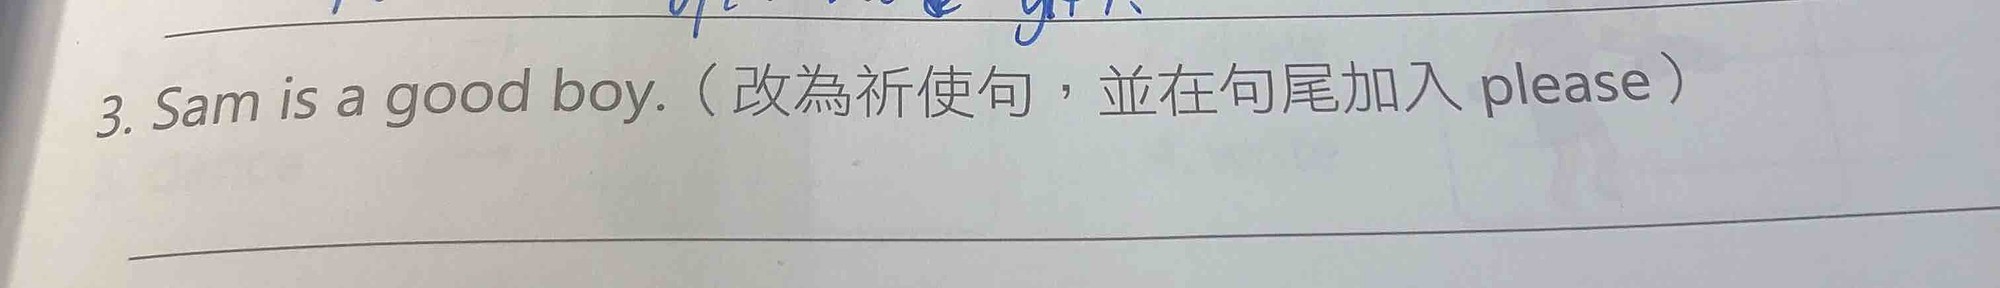 3. Sam is a good boy.（改為祈使句，並在句尾加入 please）